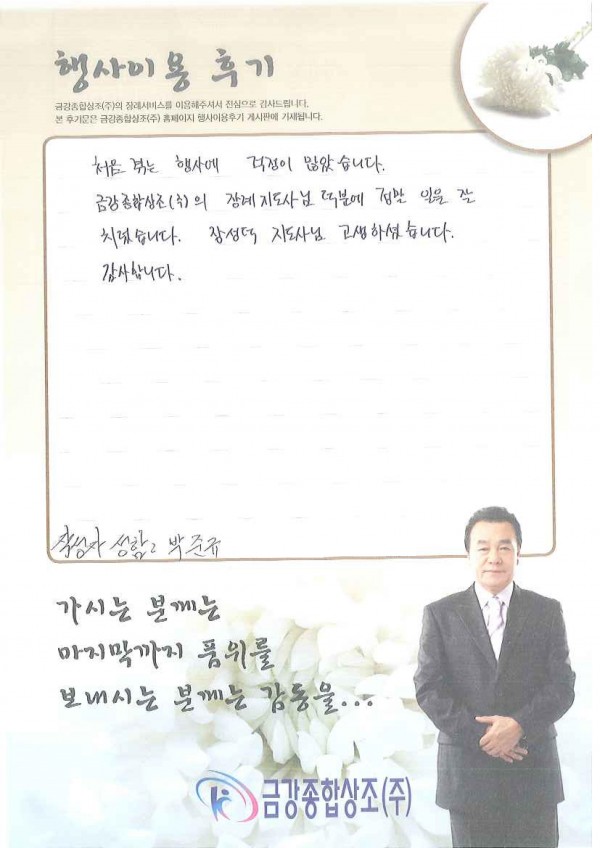 행사이용 후기
금강종합상조(주)의 장례서비스를 이용해주셔서 진심으로 감사드립니다.
본 후기문은 금강종합상조(주) 홈페이지 행사이용후기 게시판에 기재됩니다.
처음 겪는 행사에 걱정이 많았습니다.
금강종합상조(주)의 장례지도사님 덕분에 정말 일을 잘
치렀습니다. 장성덕 지도사님 고생하셨습니다.
감사합니다.
작성자 성함: 박준규
가시는 분께는
마지막까지 품위를
보내시는 분께는 감동을...
금강종합상조(주)